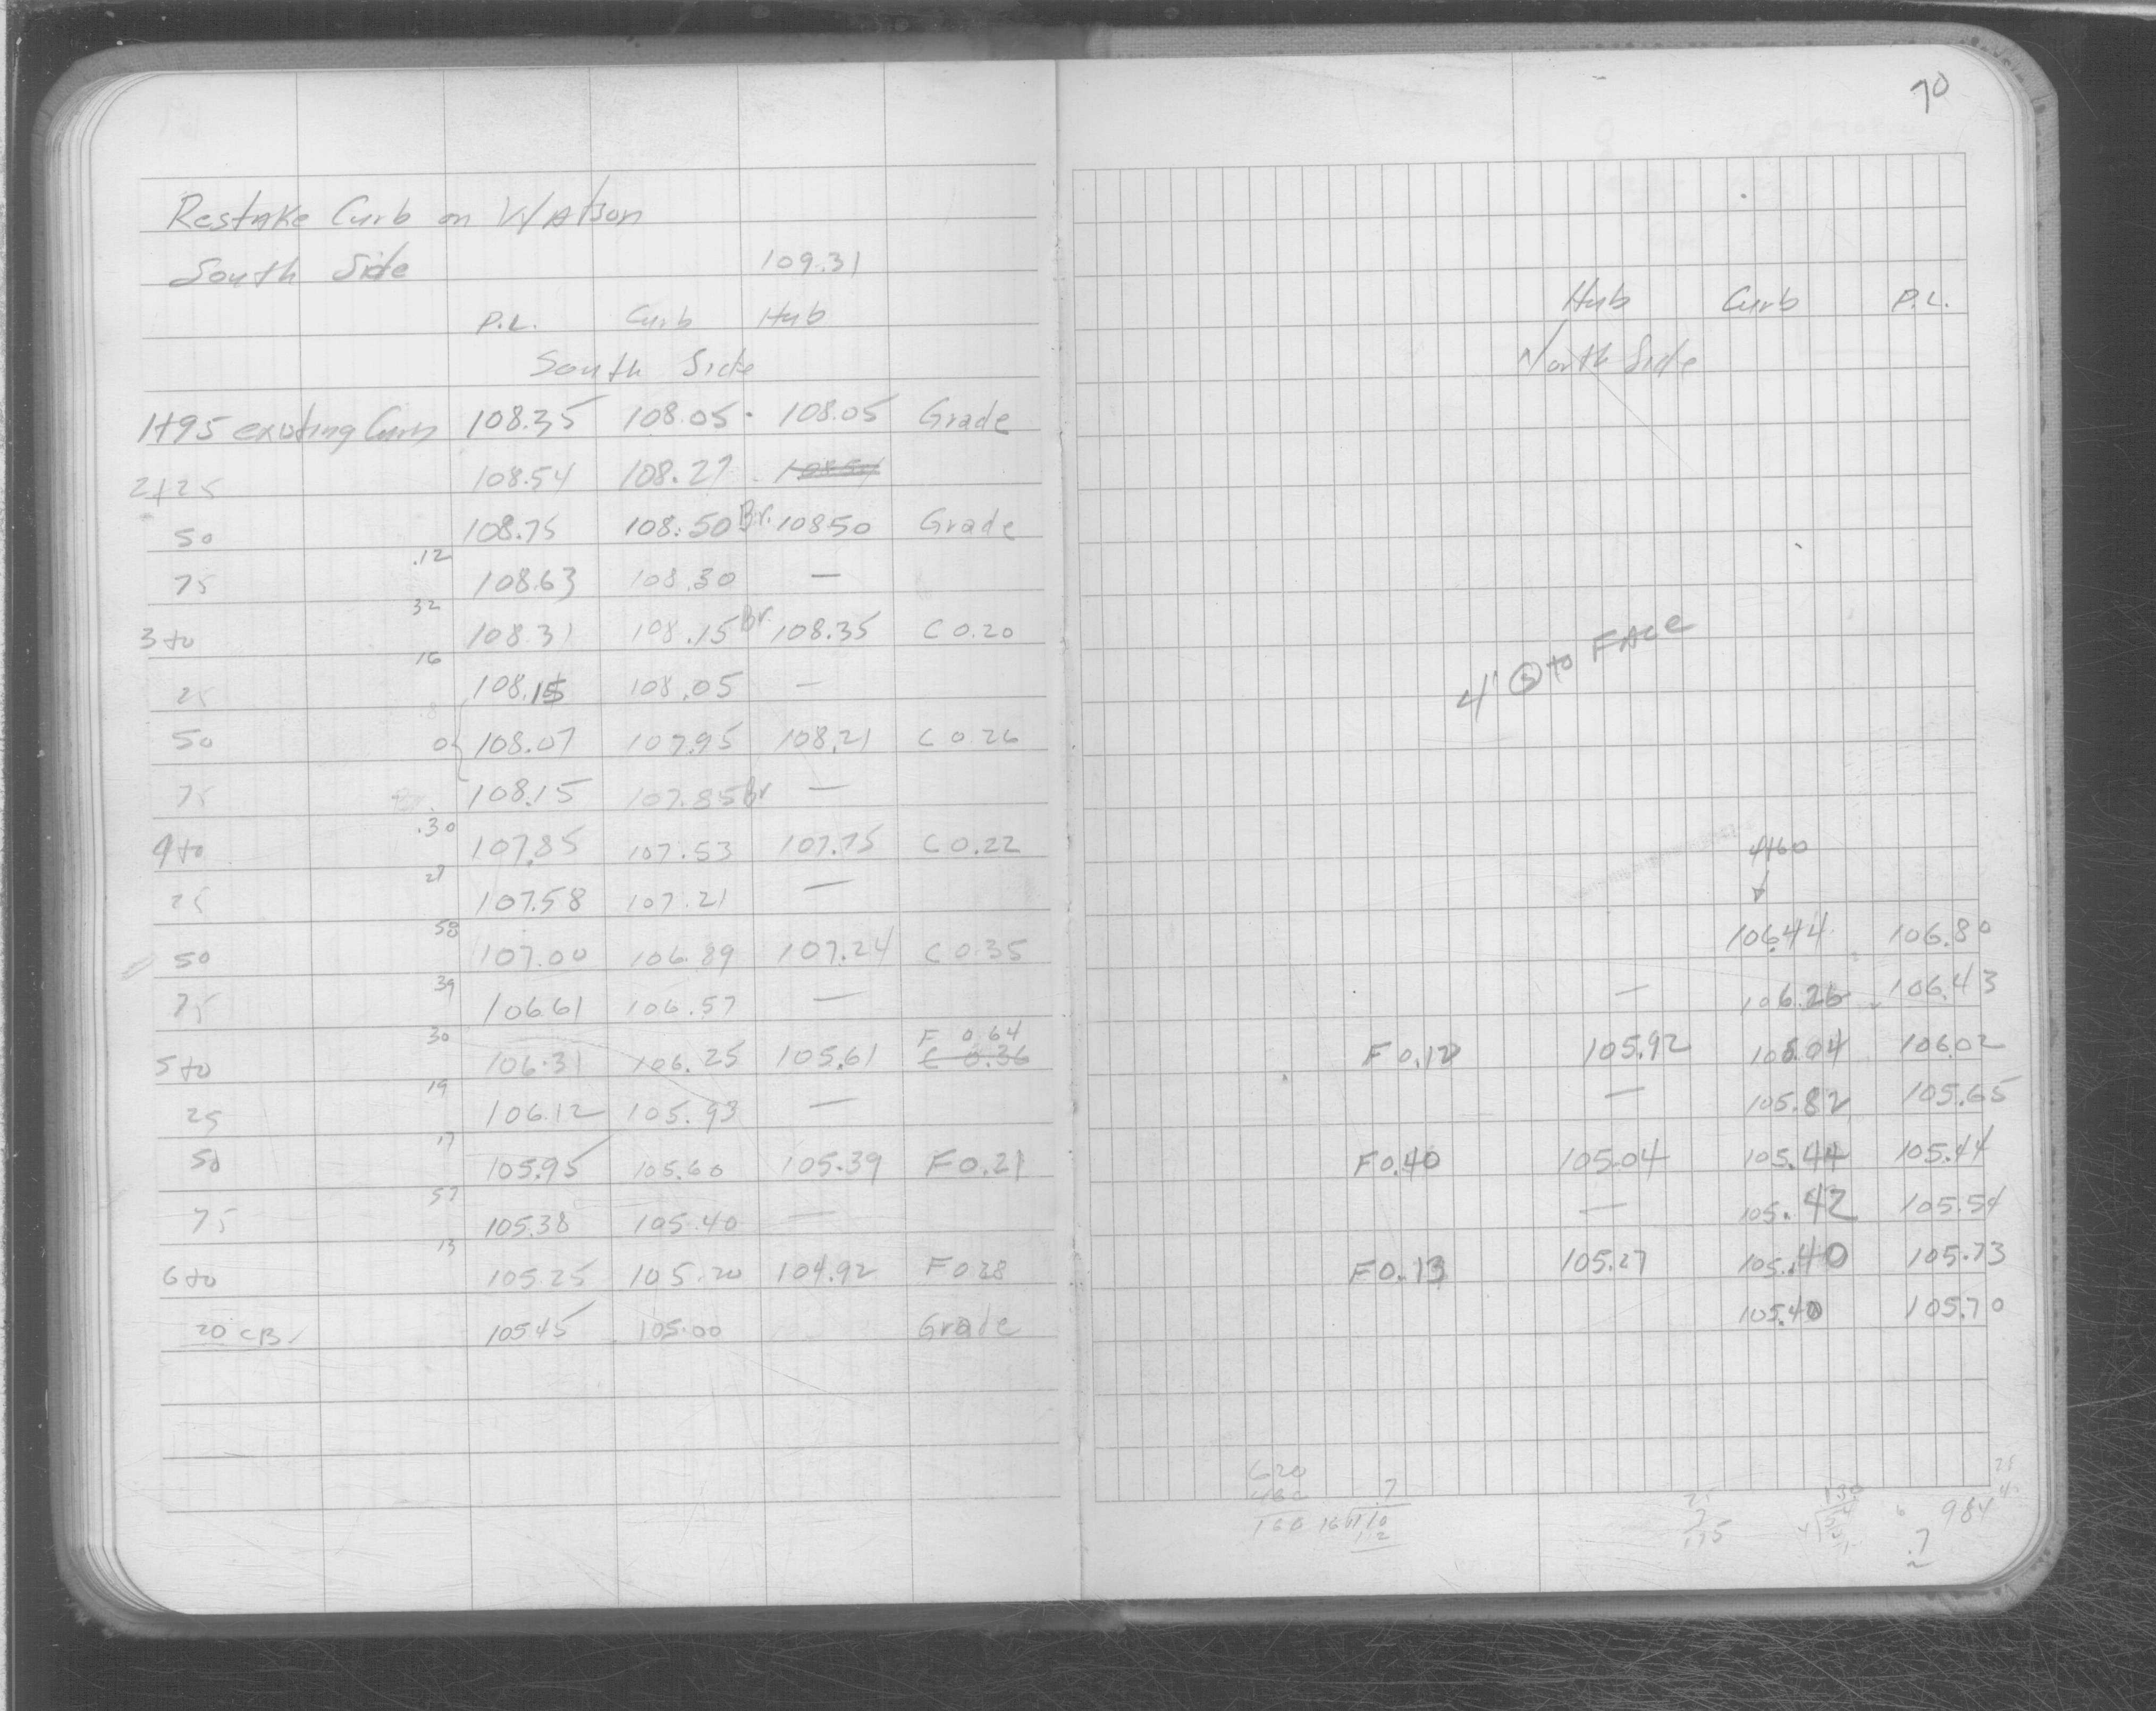 70
Restake Curb on Watson
South Side 109.31
P.L. Curb Hub
South Side
1+95 existing Curb 108.35 108.05 108.05 Grade
2+25 108.54 108.27
50 108.75 108.50 Br. 108.50 Grade
75 .12 108.63 108.30 —
3+0 32 108.31 108.15 Br. 108.35 C 0.20
25 16 108.15 108.05 —
50 0 108.07 107.95 108.21 C 0.26
75 108.15 107.85 Br —
4+0 .30 107.85 107.53 107.75 C 0.22
25 27 107.58 107.21 —
50 58 107.00 106.89 107.24 C 0.35
75 39 106.61 106.57 —
F 0.64
5+0 30 106.31 106.25 105.61 C 0.36
25 19 106.12 105.93 —
50 17 105.95 105.60 105.39 F 0.21
75 57 105.38 105.40 —
6+0 13 105.25 105.20 104.92 F 0.28
20 CB 105.45 105.00 Grade
Hub Curb P.L.
North Side
4' to FACE
4+60
106.44 106.80
— 106.26 106.43
F 0.12 105.92 106.04 106.02
— 105.82 105.65
F 0.40 105.04 105.44 105.44
— 105.42 105.54
F 0.13 105.27 105.40 105.73
105.40 105.70
620
460
160
.7
984
.7